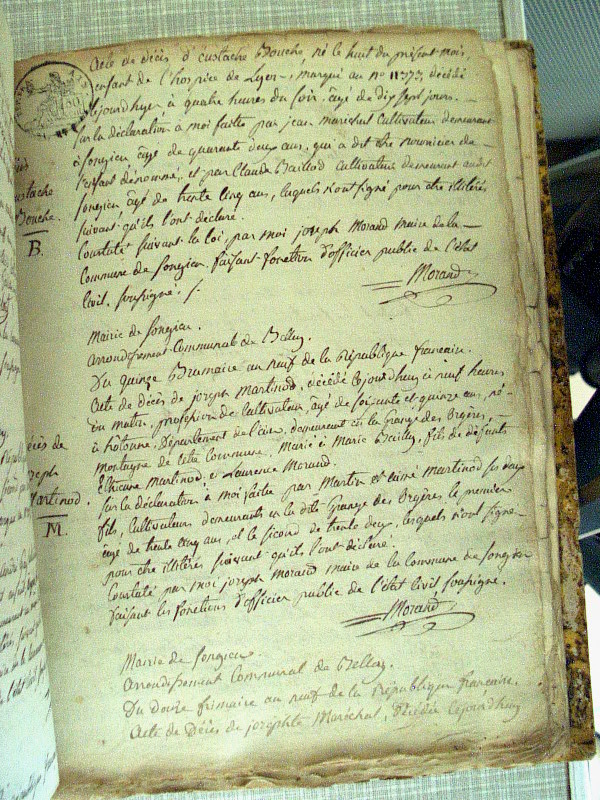 Acte de décès d'Eustache Bouche, né le huit du présent mois,
enfant de l'hospice de Lyon, marqué au no 11373, décédé
cejourdhuy à quatre heures du soir, âgé de dix sept jours.
sur la déclaration à moi faite par jean maréchal cultivateur demeurant
à songieu âgé de quarante deux ans, qui a dit être nourricier de
l'enfant dénommé, et par Claude Baillod cultivateur demeurant audit
songieu âgé de trente cinq ans, lesquels n'ont signé pour être illitérés
suivant qu'ils l'ont déclaré.
Constaté suivant la loi par moi joseph Morand maire de la
Commune de Songieu faisant fonction d'officier public de l'état
Civil, soussigné.
Morand
Eustache
Bouche.
B.
Mairie de songieu.
arrondissement Communal de Belley.
Du quinze Brumaire an neuf de la République francaise.
Acte de décès de joseph Martinod, décédé cejourdhuy à neuf heures
du matin, profession de cultivateur, âgé de soixante et quinze ans, né
à hotonne, Département de l'ain, demeurant en la Grange des Ergères,
montagne de cette Commune, Marié à Marie Bailly, fils de défunts
Etienne martinod, et Laurence Morand.
sur la déclaration à moi faite par Martin et aimé martinod ses deux
fils, Cultivateurs demeurants en la dite Grange des Ergères, le premier
âgé de trente cinq ans, et le second de trente deux, lesquels n'ont signé
pour être illitérés suivant qu'ils l'ont déclaré.
Constaté par moi joseph Morand maire de la Commune de songieu
faisant les fonctions d'officier public de l'état Civil soussigné.
Morand
décès de
joseph
Martinod.
M.
Mairie de songieu.
arrondissement Communal de Belley.
Du douze frimaire an neuf de la République francaise.
Acte de Décès de josephte Maréchal, Décédée cejourdhuy